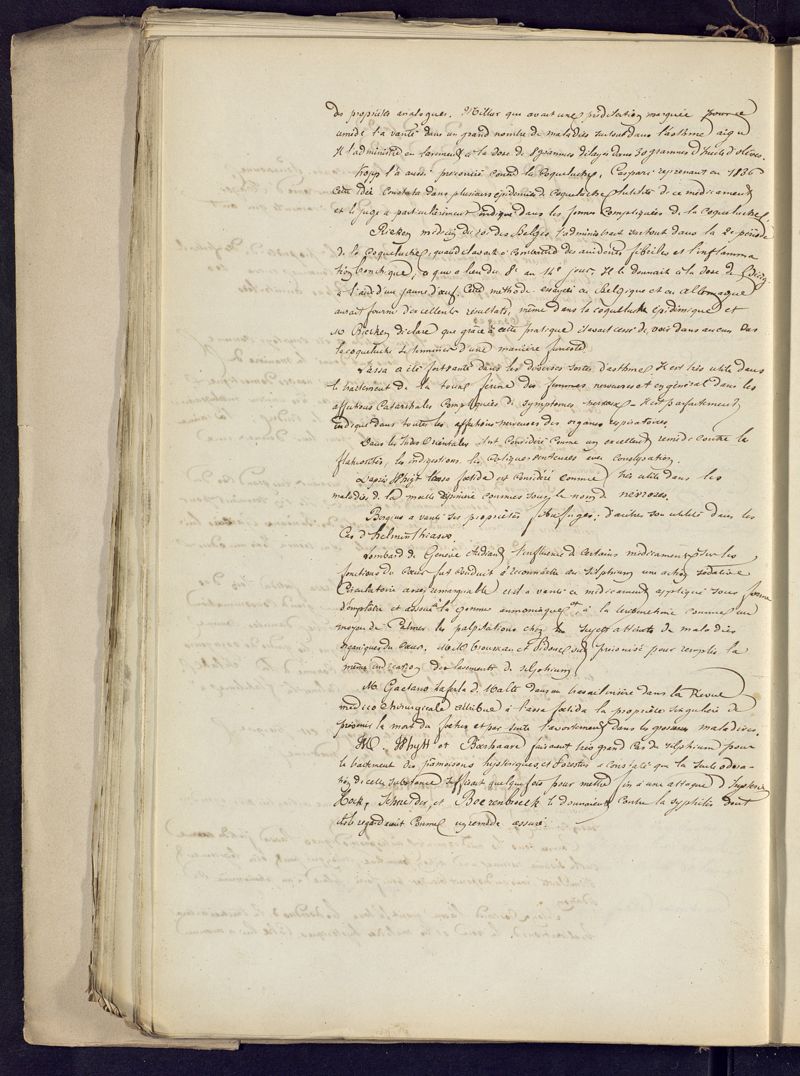 des propriétés analogues. Millar qui avait une prédilection marquée pour ce
remède l'a vanté dans un grand nombre de maladies surtout dans l'asthme aigu
Il l'administre en lavement à la dose de 8 grammes délayé dans 30 grammes d'huile d'olives.
Kopp l'a aussi préconisé contre la coqueluche, Caspari reprenant en 1836
cette idée constata dans plusieurs épidémies de coqueluche l'utilité de ce médicament
et le juge à particulièrement indiqué dans les formes compliquées de la coqueluche.
Rieken médecin du roi des Belges l'administrait surtout dans la 2e période
de la coqueluche, quand elle avait été combattue des accidents fébriles et l'inflamma
tion bronchique, ce qui a lieu du 8e au 14e jour. Il le donnait à la dose de
à l'aide d'un jaune d'œuf. Cette méthode essayée en Belgique et en Allemagne
aurait fourni d'excellents résultats, même dans la coqueluche épidémique et
M. Rieken déclare que grâce à cette pratique il avait cessé de voir dans aucun cas
la coqueluche se terminer d'une manière funeste.
L'assa a été fort vanté dans les diverses sortes d'asthme. Il est très utile dans
le traitement de la toux férine des femmes nerveuses et en général dans les
affections catarrhales compliquées de symptomes nerveux. Il est parfaitement
indiqué dans toutes les affections nerveuses des organes respiratoires.
Dans les Indes Orientales il est considéré comme un excellent remède contre la
flatuosité, les indigestions les coliques venteuses avec constipation.
D'après Whytt l'assa fœtida est considéré comme très utile dans les
maladies de la moelle épinière connues sous le nom de névroses.
Bergius a vanté ses propriétés fébrifuges; d'autres son utilité dans les
cas d'helminthiases.
Lombard de Genève étudiant l'influence de certains médicaments sur les
fonctions du cœur fut conduit à reconnaître au silphium une action sédative
circulatoire assez remarquable et il a vanté ce médicament appliqué sous forme
d'emplâtre et associé à la gomme ammoniaque et à la comme un
moyen de calmer les palpitations chez les sujets atteints de maladies
organiques du cœur. MM. Trousseau et Pidoux ont préconisé pour remplir la
même indication des lavements de silphium.
M. Gaetano Laferla de Malte dans un travail inséré dans la Revue
médico chirurgicale attribue à l'assa fœtida la propriété singulière de
prévenir la mort du fœtus et par suite l'avortement dans les grossesses maladives.
Whytt et Boerhaave faisaient très grand cas du silphium pour
le traitement des pamoisons hystériques, et Forestus a constaté que la seule odora-
tion de cette substance suffisait quelquefois pour mettre fin à une attaque d'hystérie
Hecker, Schneider, et Beerenbroek le donnaient contre la syphilis dont
ils le regardaient comme un remède assuré.